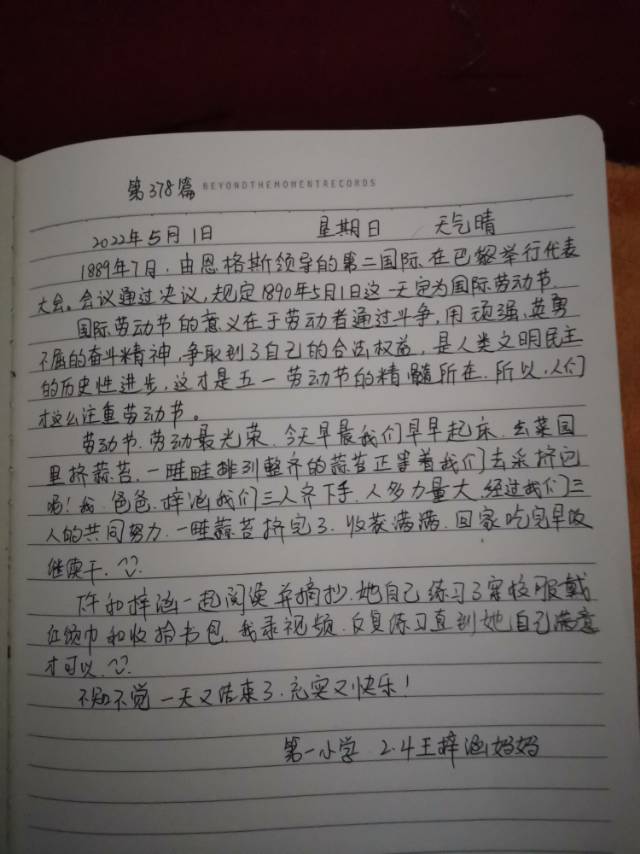 第378篇 BEYONDTHEMOMENTRECORDS
2022年5月1日 星期日 天气晴
1889年7月.由恩格斯领导的第二国际.在巴黎举行代表
大会。会议通过决议,规定1890年5月1日这一天定为国际劳动节.
国际劳动节的意义在于劳动者通过斗争,用顽强,英勇
不屈的奋斗精神,争取到了自己的合法权益,是人类文明民主
的历史性进步,这才是五一劳动节的精髓所在.所以,人们
才这么注重劳动节。
劳动节.劳动最光荣.今天早晨我们早早起床.去菜园
里挤蒜苔.一畦畦排列整齐的蒜苔正等着我们去采挤它
呢!我.爸爸.梓涵我们三人齐下手.人多力量大.经过我们三
人的共同努力.一畦蒜苔挤完了.收获满满.回家吃完早饭
继续干.
下午和梓涵一起阅读并摘抄.她自己练习了穿校服戴
红领巾和收拾书包.我录视频.反复练习直到她自己满意
才可以.
不知不觉一天又结束了.充实又快乐!
第一小学 2.4王梓涵妈妈